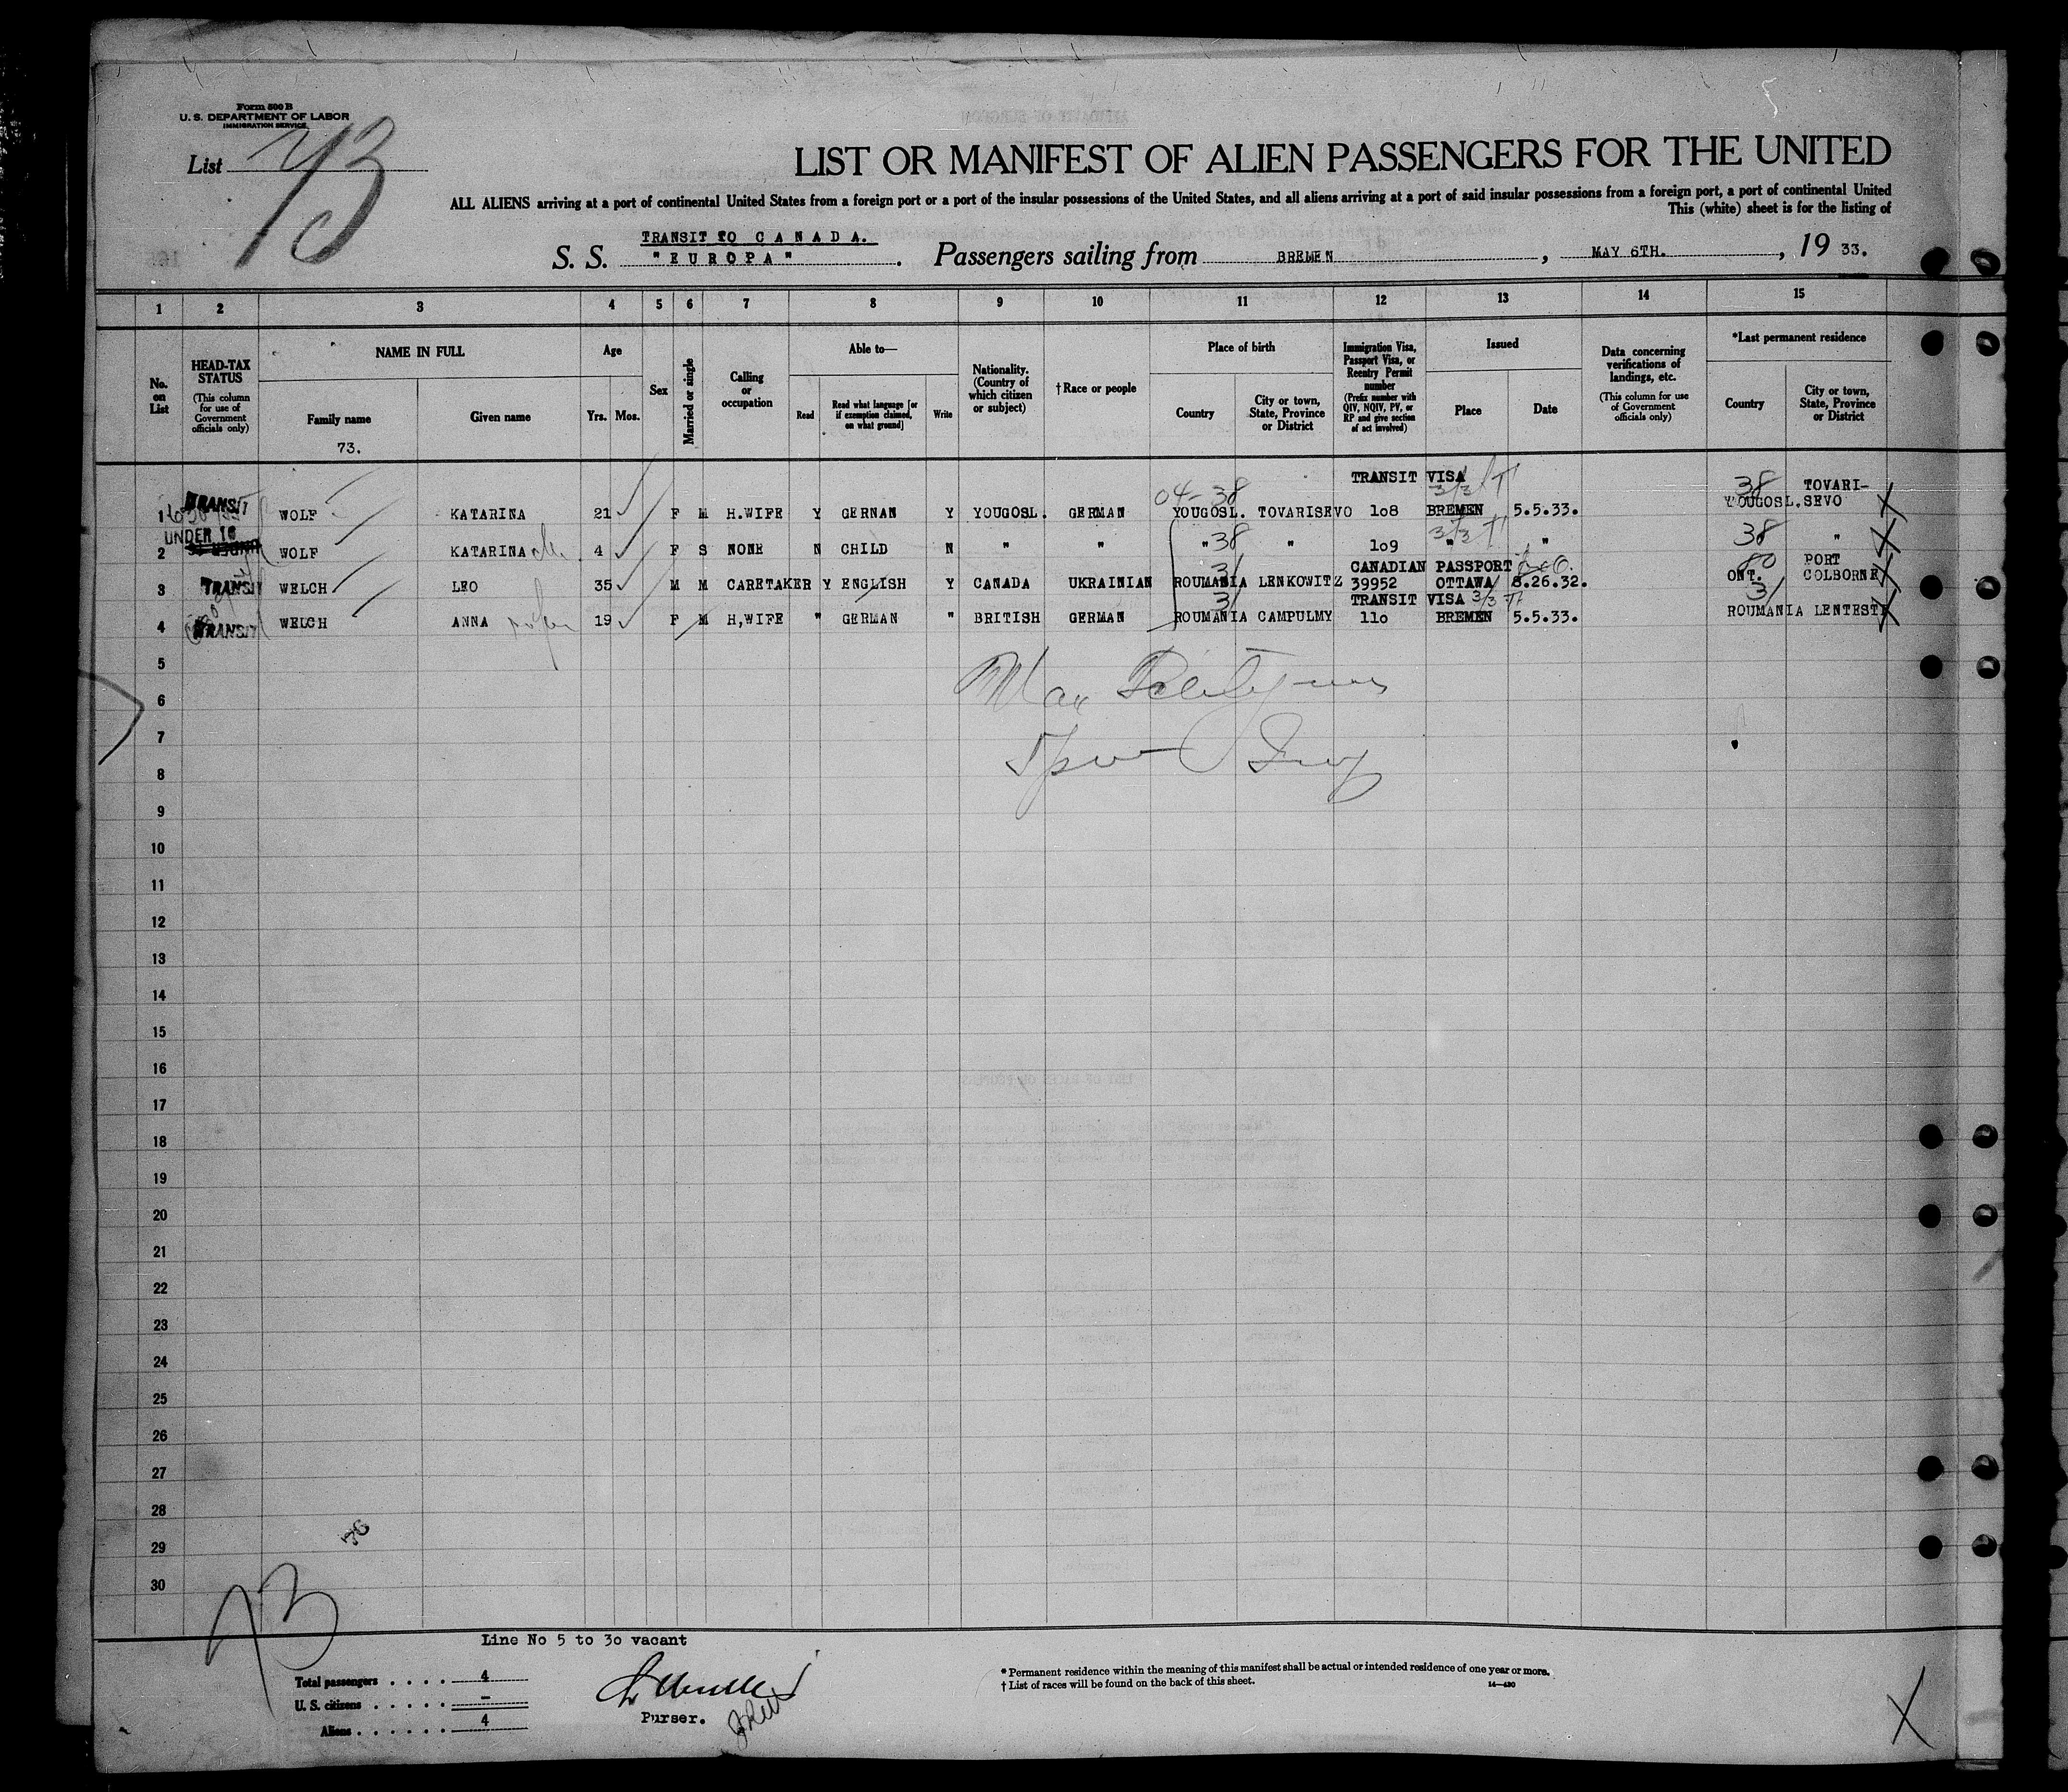 Form 500 B
U. S. DEPARTMENT OF LABOR
IMMIGRATION SERVICE
List 73
LIST OR MANIFEST OF ALIEN PASSENGERS FOR THE UNITED
ALL ALIENS arriving at a port of continental United States from a foreign port or a port of the insular possessions of the United States, and all aliens arriving at a port of said insular possessions from a foreign port, a port of continental United
This (white) sheet is for the listing of
TRANSIT TO CANADA.
S. S. "EUROPA". Passengers sailing from BREMEN, MAY 6TH., 1933.
1 2 3 4 5 6 7 8 9 10 11 12 13 14 15
No. on List
HEAD-TAX STATUS
(This column for use of Government officials only)
NAME IN FULL
Family name
73.
Given name
Age
Yrs. Mos.
Sex
Married or single
Calling or occupation
Able to—
Read
Read what language [or if exemption claimed, on what ground]
Write
Nationality. (Country of which citizen or subject)
† Race or people
Place of birth
Country
City or town, State, Province or District
Immigration Visa, Passport Visa, or Reentry Permit number
(Prefix number with QIV, NQIV, PV, or RP and give section of act involved)
Issued
Place
Date
Data concerning verifications of landings, etc.
(This column for use of Government officials only)
*Last permanent residence
Country
City or town, State, Province or District
TRANSIT VISA
04-38 3/3 38 TOVARI-
1 TRANSIT WOLF KATARINA 21 F M H.WIFE Y GERNAN Y YOUGOSL. GERMAN YOUGOSL. TOVARISEVO 1o8 BREMEN 5.5.33. YOUGOSL. SEVO
UNDER 16
2 WOLF KATARINA 4 F S NONE N CHILD N " " " 38 " 1o9 3/3 " " 38 "
CANADIAN PASSPORT PORT
3 TRANSIT WELCH LEO 35 M M CARETAKER Y ENGLISH Y CANADA UKRAINIAN ROUMANIA 31 LENKOWITZ 39952 OTTAWA 8.26.32. ONT. COLBORNE
TRANSIT VISA 3/3 31
4 TRANSIT WELCH ANNA 19 F M H,WIFE " GERMAN " BRITISH GERMAN ROUMANIA 31 CAMPULMY 11o BREMEN 5.5.33. ROUMANIA LENTESTI
5
6
7
8
9
10
11
12
13
14
15
16
17
18
19
20
21
22
23
24
25
26
27
28
29
30
73
Line No 5 to 3o vacant
Total passengers . . . . 4
U. S. citizens . . . . . —
Aliens . . . . . . 4
Purser.
* Permanent residence within the meaning of this manifest shall be actual or intended residence of one year or more.
† List of races will be found on the back of this sheet.
14—430